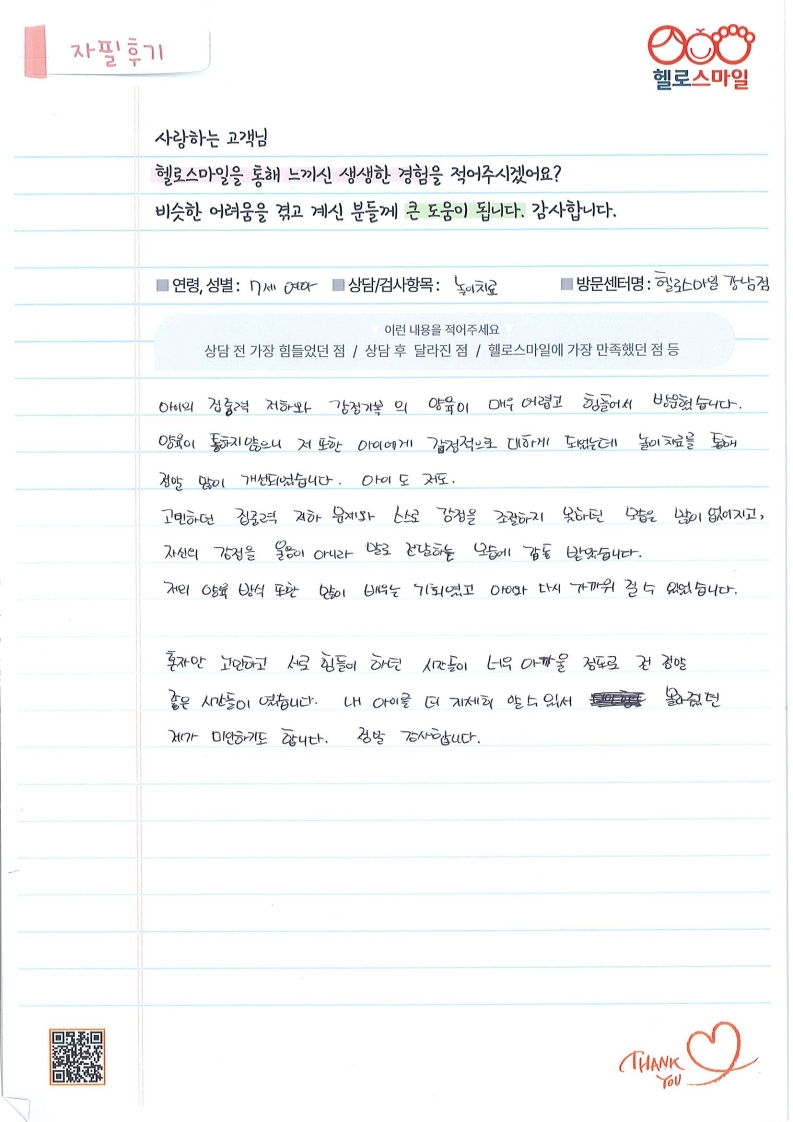 자필후기
헬로스마일
사랑하는 고객님
헬로스마일을 통해 느끼신 생생한 경험을 적어주시겠어요?
비슷한 어려움을 겪고 계신 분들께 큰 도움이 됩니다. 감사합니다.
연령, 성별 : 7세 여아 상담/검사항목 : 놀이치료 방문센터명 : 헬로스마일 강남점
이런 내용을 적어주세요
상담 전 가장 힘들었던 점 / 상담 후 달라진 점 / 헬로스마일에 가장 만족했던 점 등
아이의 집중력 저하와 감정기복 의 양육이 매우 어렵고 힘들어서 방문했습니다.
양육이 통하지않으니 저 또한 아이에게 감정적으로 대하게 되었는데 놀이치료를 통해
정말 많이 개선되었습니다. 아이도 저도.
고민하던 집중력 저하 문제와 스스로 감정을 조절하지 못하던 모습은 많이 없어지고,
자신의 감정을 울음이 아니라 말로 전달하는 모습에 감동 받았습니다.
저의 양육 방식 또한 많이 배우는 기회였고 아이와 다시 가까워 질 수 있었습니다.
혼자만 고민하고 서로 힘들어 하던 시간들이 너무 아까울 정도로 전 정말
좋은 시간들이 였습니다. 내 아이를 더 자세히 알 수 있어서 몰라줬던
제가 미안하기도 합니다. 정말 감사합니다.
THANK
YOU